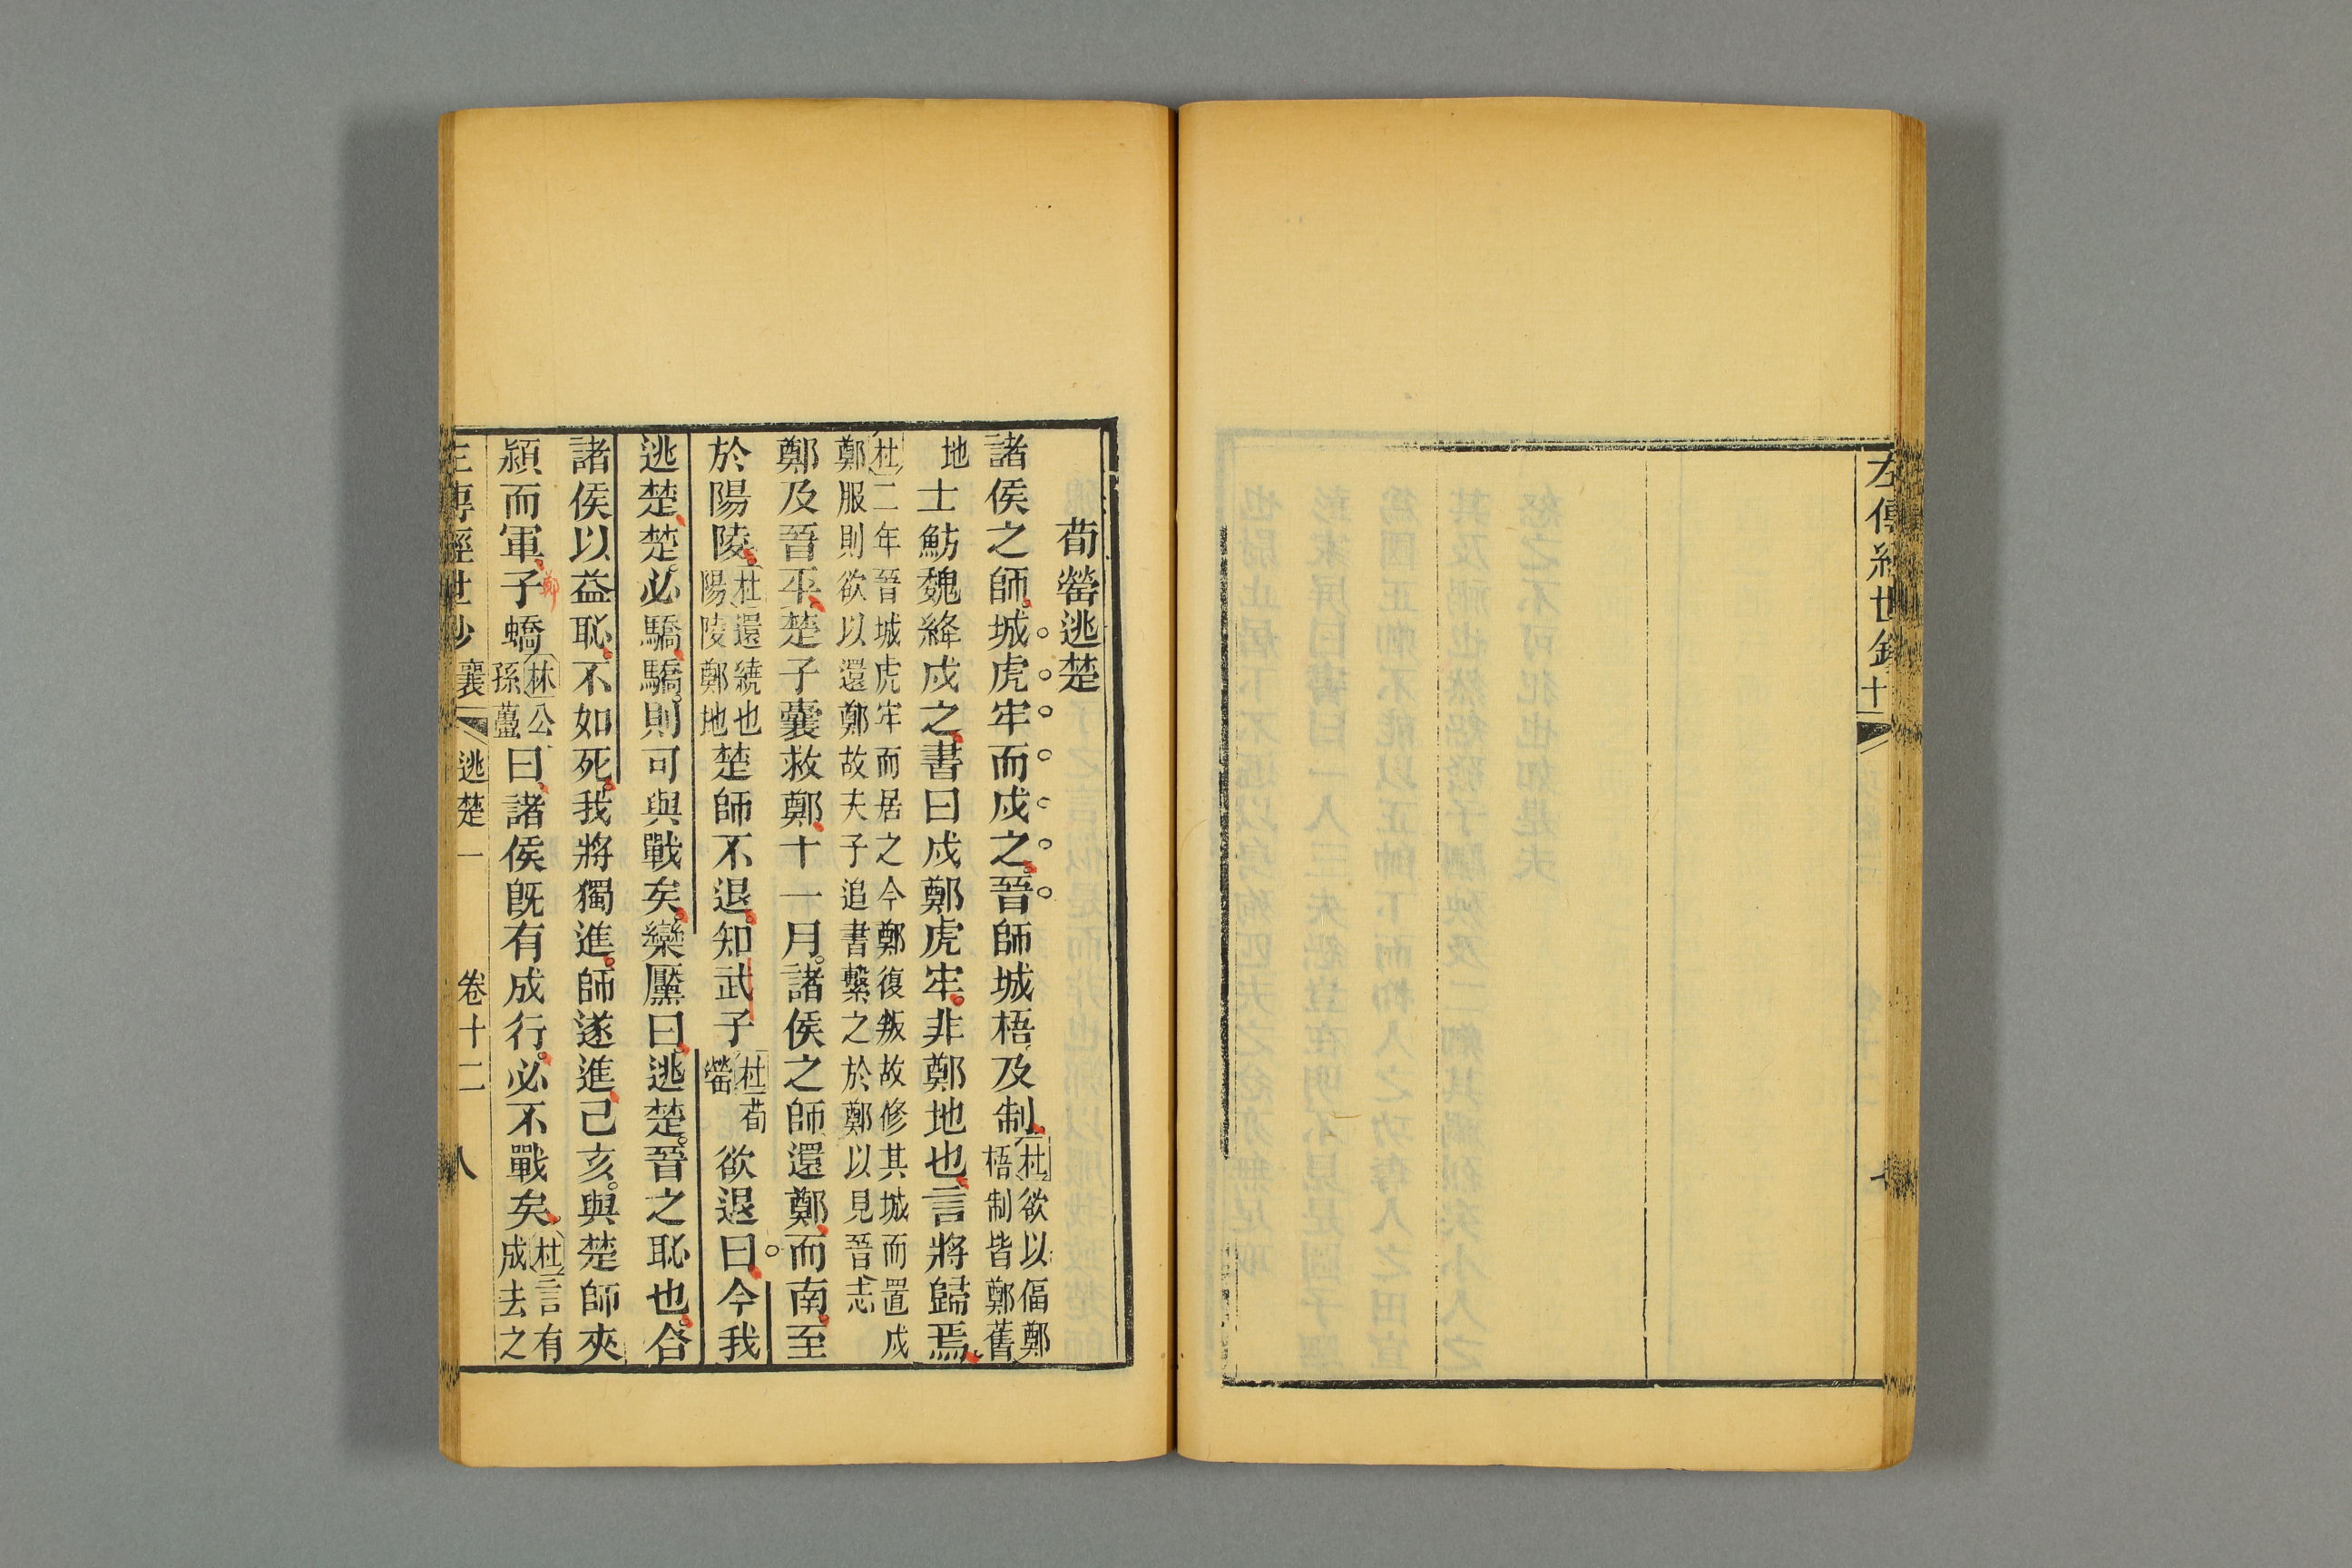 左傳經世鈔
荀罃逃楚
諸侯之師城虎牢而戍之晉師城梧及制杜欲以偪鄭梧制皆鄭舊
地士魴魏絳戍之書曰戍鄭虎牢非鄭地也言將歸焉
杜二年晉城虎牢而居之今鄭復叛故修其城而置戍鄭服則欲以還鄭故夫子追書繫之於鄭以見晉志
鄭及晉平楚子囊救鄭十一月諸侯之師還鄭而南至
於陽陵杜還繞也陽陵鄭地楚師不退知武子杜荀罃欲退曰今我
逃楚楚必驕驕則可與戰矣欒黶曰逃楚晉之恥也合
諸侯以益恥不如死我將獨進師遂進己亥與楚師夾
潁而軍子蟜林公孫蠆曰諸侯既有成行必不戰矣杜言有成去之
鄭
左傳經世鈔 襄 逃楚一 卷十二 八